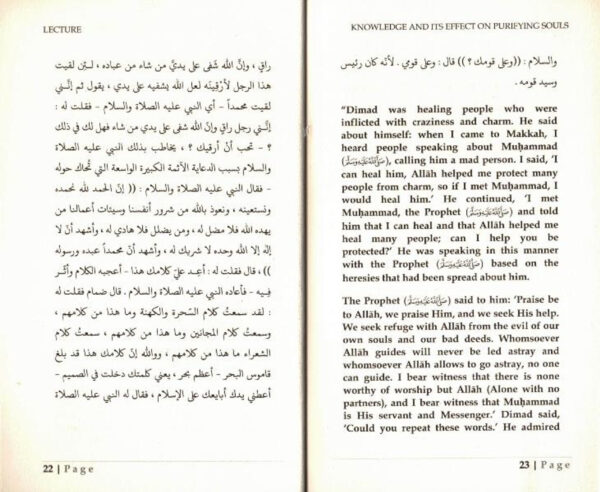 LECTURE
راقٍ ، وإنّ الله شفى على يديّ من شاء من عباده ، لـئن لقيت
هذا الرجل لأرْقِينّه لعل الله يشفيه على يدي ، يقول ثم إنّـني
لقيت محمداً - أي النبي عليه الصلاة والسلام - فقلت له :
إنّـني رجل راقٍ وإنّ الله شفى على يدي من شاء فهل لك في ذلك
؟ - تحب أنْ أرقيك ؟ ، يخاطب بذلك النبي عليه الصلاة
والسلام بسبب الدعاية الأثمة الكبيرة الواسعة التي تُحاك حوله
- فقال النبي عليه الصلاة والسلام : (( إنّ الحمد لله نحمده
ونستعينه ، ونعوذ بالله من شرور أنفسنا وسيئات أعمالنا من
يهده الله فلا مضل له ، ومن يضلل فلا هادي له ، وأشهد أنْ لا
إله إلا الله وحده لا شريك له ، وأشهد أنّ محمداً عبده ورسوله
)) ، قال فقلت له : أعِـد عليّ كلامك هذا - أعجبه الكلام وأثّـر
فيـه - فأعاده النبي عليه الصلاة والسلام . قال ضمام فقلت له
: لقد سمعتُ كلام السّحرة والكهنة وما هذا من كلامهم ،
وسمعتُ كلام المجانين وما هذا من كلامهم ، سمعتُ كلام
الشعراء ما هذا من كلامهم ، ووالله إنّ كلامك هذا قد بلغ
قاموس البحر - أعظم بحر ، يعني كلمتك دخلت في الصميم -
أعطني يدك أبايعك على الإسلام ، فقال له النبي عليه الصلاة
22 | Page
KNOWLEDGE AND ITS EFFECT ON PURIFYING SOULS
والسلام : ((وعلى قومك ؟ )) قال : وعلى قومي . لأنّه كان رئيس
وسيد قومه .
“Dimad was healing people who were
inflicted with craziness and charm. He said
about himself: when I came to Makkah, I
heard people speaking about Muḥammad
(ﷺ), calling him a mad person. I said, ‘I
can heal him, Allāh helped me protect many
people from charm, so if I met Muḥammad, I
would heal him.’ He continued, ‘I met
Muḥammad, the Prophet (ﷺ) and told
him that I can heal and that Allāh helped me
heal many people; can I help you be
protected?’ He was speaking in this manner
with the Prophet (ﷺ) based on the
heresies that had been spread about him.
The Prophet (ﷺ) said to him: ‘Praise be
to Allāh, we praise Him, and we seek His help.
We seek refuge with Allāh from the evil of our
own souls and our bad deeds. Whomsoever
Allāh guides will never be led astray and
whomsoever Allāh allows to go astray, no one
can guide. I bear witness that there is none
worthy of worship but Allāh (Alone with no
partners), and I bear witness that Muḥammad
is His servant and Messenger.’ Dimad said,
‘Could you repeat these words.’ He admired
23 | Page